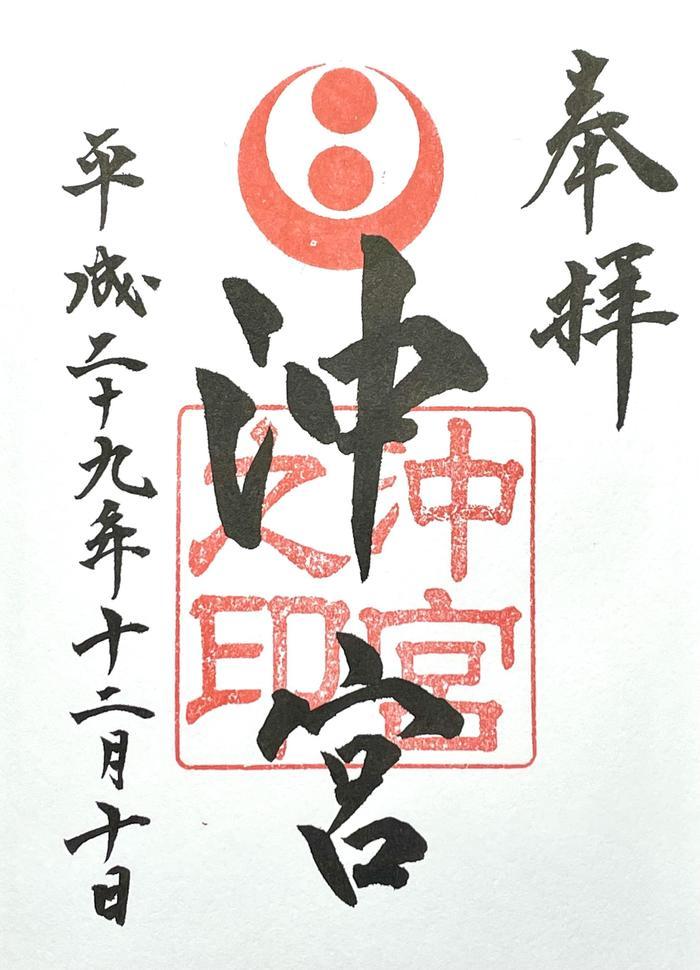 奉拝
沖宮
沖宮之印
平成二十九年十二月十日